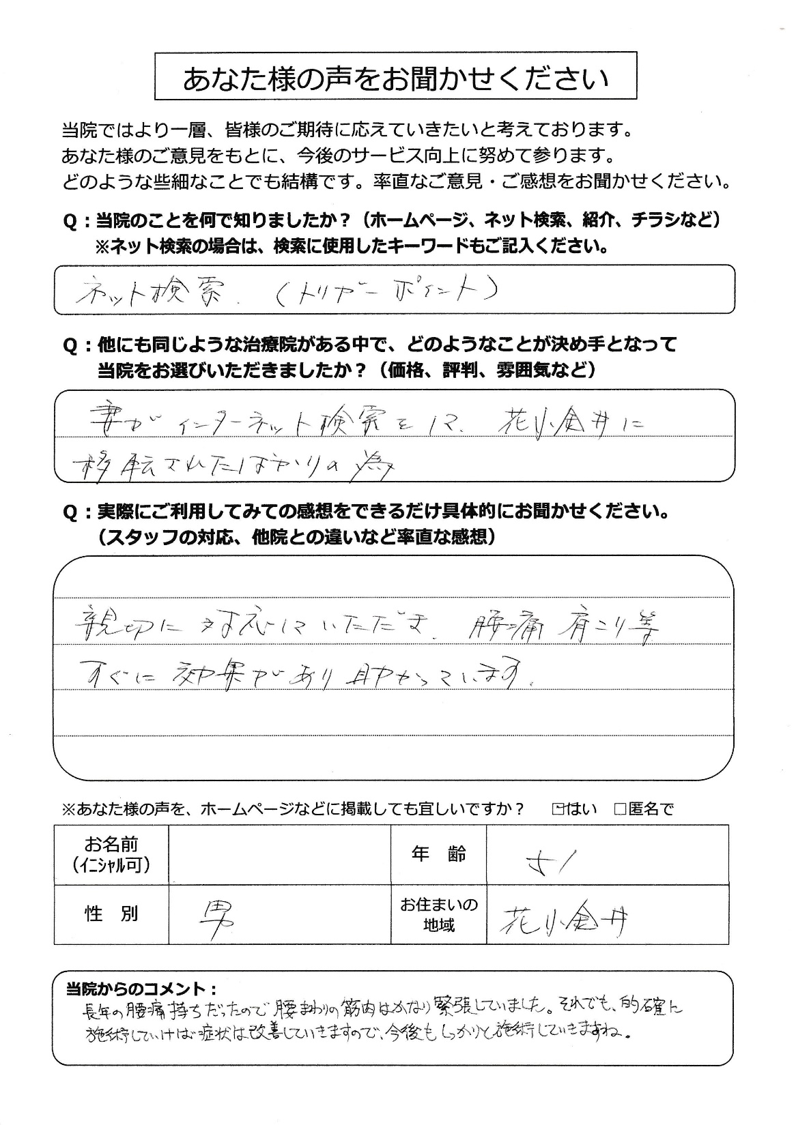 あなた様の声をお聞かせください
当院ではより一層、皆様のご期待に応えていきたいと考えております。
あなた様のご意見をもとに、今後のサービス向上に努めて参ります。
どのような些細なことでも結構です。率直なご意見・ご感想をお聞かせください。
Q：当院のことを何で知りましたか？（ホームページ、ネット検索、紹介、チラシなど）
※ネット検索の場合は、検索に使用したキーワードもご記入ください。
ネット検索．（トリガーポイント）
Q：他にも同じような治療院がある中で、どのようなことが決め手となって
当院をお選びいただきましたか？（価格、評判、雰囲気など）
妻がインターネット検索をして．花小金井に
移転されたばかりの為
Q：実際にご利用してみての感想をできるだけ具体的にお聞かせください。
（スタッフの対応、他院との違いなど率直な感想）
親切に対応していただき．腰痛 肩こり等
すぐに効果があり助かっています．
※あなた様の声を、ホームページなどに掲載しても宜しいですか？ ☑はい □匿名で
お名前
（ｲﾆｼｬﾙ可）
年 齢
51
性 別
男
お住まいの
地域
花小金井
当院からのコメント：
長年の腰痛持ちだったので腰まわりの筋肉はかなり緊張していました。それでも、的確に
施術していけば症状は改善していきますので、今後もしっかりと施術していきますね。